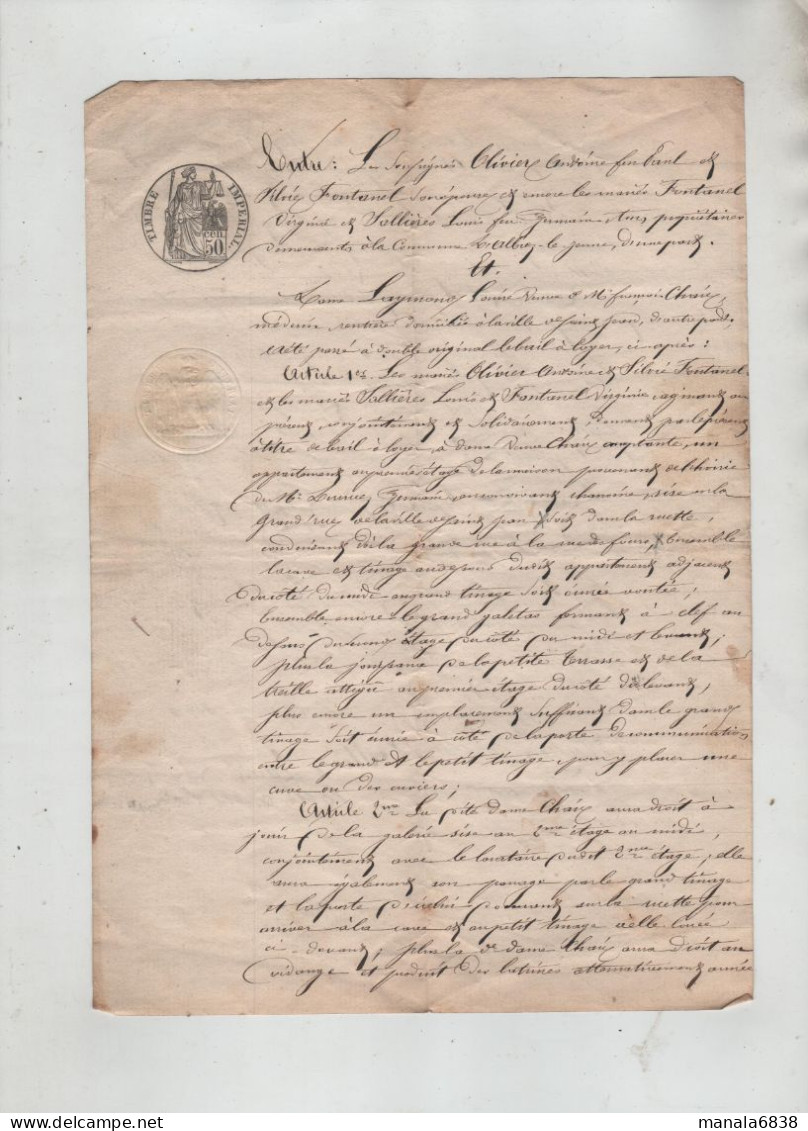 TIMBRE IMPERIAL
50 CEN.
Entre: Les soussignés Olivier Antoine feu Paul et
Silvie Fontanel son épouse et encore les mariés Fontanel
Virginie et Sallières Louis feu Germain, tous propriétaires
demeurants à la Commune d'Albiez-le-jeune, d'une part.
Et.
Dame Laymond Louise Veuve de Mr françois Chaix,
médecin rentière domiciliée à la ville de Saint Jean, d'autre part,
a été passé à double original le bail à loyer, ci après:
Article 1er. Les mariés Olivier Antoine et Silvie Fontanel
et les mariés Sallières Louis et Fontanel Virginie agissant au
présent, conjointement et solidairement, donnent par le présent
à titre de bail à loyer, à dame Veuve Chaix acceptante, un
appartement au premier étage de la maison provenant de l'hoirie
du Mr Germain en son vivant chanoine, sise en la
Grand'rue de la ville de Saint Jean soit dans la ruette,
conduisant de la grande rue à la rue des fours, ensemble
la cave et tinage au dessous dudit appartement adjacent
du côté du midi au grand tinage soit écurie voûtée;
Ensemble encore le grand galetas formant à clef au
dessus du second étage du côté du midi et levant;
plus la jouissance de la petite terrasse et de la
treille attigue au premier étage du côté du levant,
plus encore un emplacement suffisant dans le grand
tinage soit écurie à côté de la porte de communication
entre le grand et le petit tinage, pour y placer une
cuve ou des cuviers;
Article 2me La dite dame Chaix aura droit à
jouir de la galerie sise au 2me étage au midi,
conjointement avec le locataire dudit 2me étage; elle
aura également son passage par le grand tinage
et la porte d'icelui donnant sur la ruette pour
arriver à la cave et au petit tinage à elle loués
ci-devant; plus la de dame Chaix aura droit au
vidange et produit des latrines alternativement année
manala6838